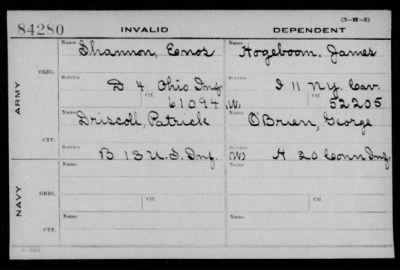 84280 INVALID DEPENDENT (3-H-2)
Name Shannon, Enos Name Hogeboom, James
ARMY
ORIG.
Service D 4 Ohio Inf. Service I 11 N.Y. Cav.
Ctf. 61094 W. Ctf. 52205
CTF.
Name Driscoll, Patrick Name O'Brien, George
Service B 13 U.S. Inf. Service W) H 20 Conn Inf.
NAVY
ORIG.
Name Name
Ctf. Ctf.
CTF.
Name Name